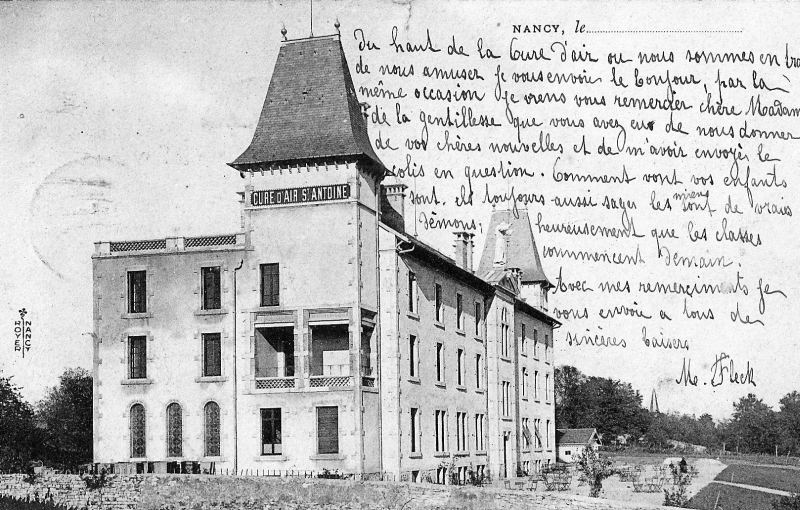 NANCY, le
Du haut de la Cure d'air ou nous sommes en tra
de nous amuser je vous envoie le bonjour, par la
même occasion je viens vous remercier chère Madam
de la gentillesse que vous avez eu de nous donner
de vos chères nouvelles et de m'avoir envoyés le
colis en question. Comment vont vos enfants
sont ils toujours aussi sages les miens sont de vraies
démons, heureusement que les classes
commencent demain.
Avec mes remerciments je
vous envoie a tous de
sincères baisers
M. Fleck
CURE D'AIR ST ANTOINE
ROYER NANCY